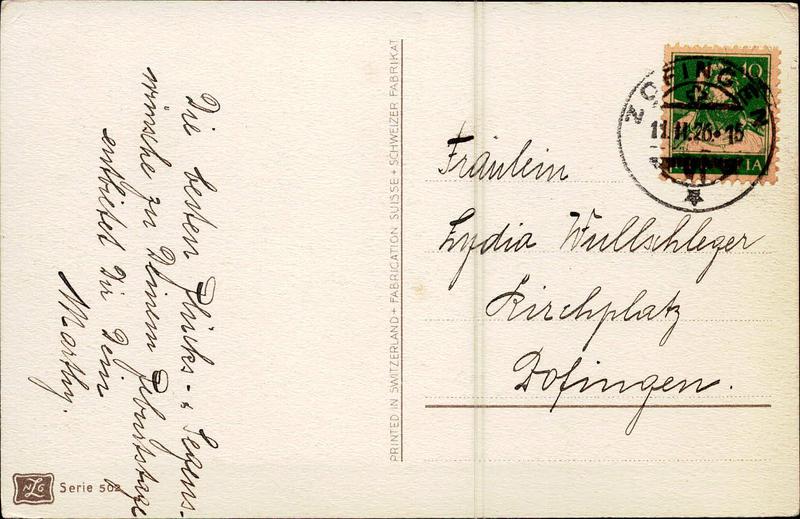 Die besten Glücks- & Segens-
wünsche zu Deinem Geburtstage
entbietet Dir Dein
Marthy.
NLG
Serie 502
PRINTED IN SWITZERLAND + FABRICATION SUISSE + SCHWEIZER FABRIKAT
10
ZOFINGEN
11.II.26-15
VI
Fräulein
Lydia Wullschleger
Kirchplatz
Zofingen.